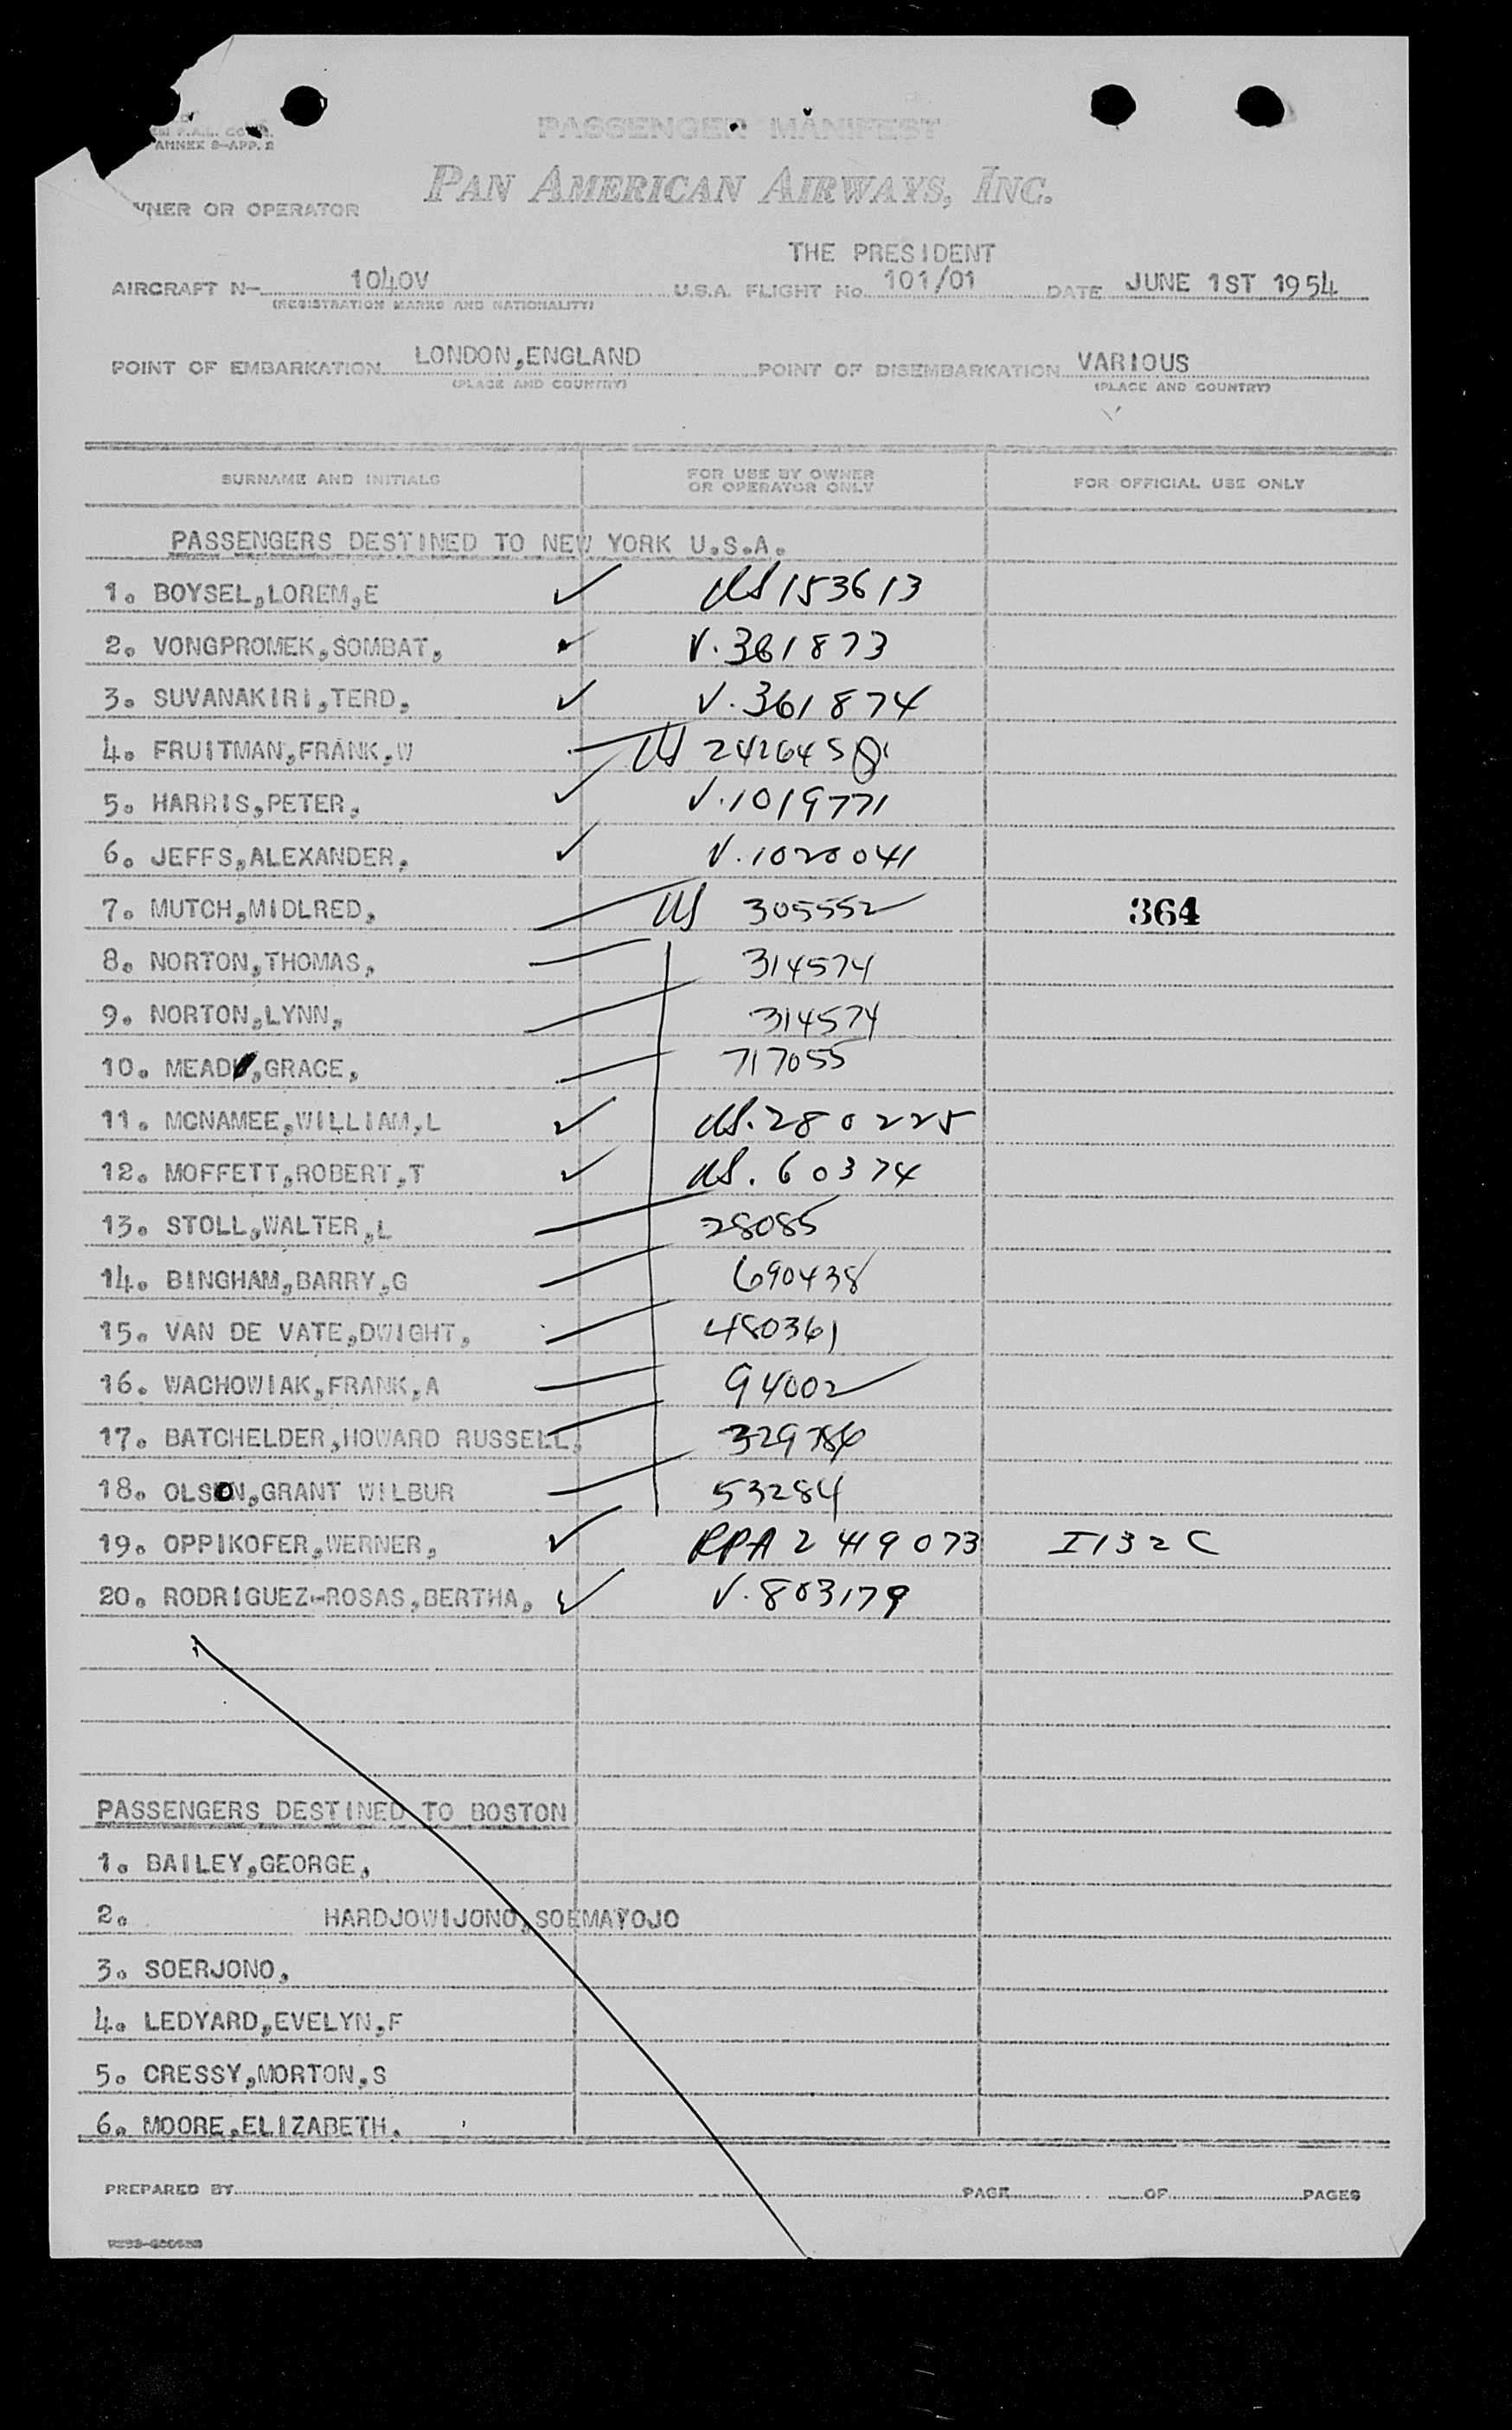 P.A.L. CONV.
ANNEX 9-APP. 2
PASSENGER MANIFEST
OWNER OR OPERATOR PAN AMERICAN AIRWAYS, INC.
THE PRESIDENT
AIRCRAFT N- 1040V U.S.A. FLIGHT No. 101/01 DATE JUNE 1ST 1954
(REGISTRATION MARKS AND NATIONALITY)
POINT OF EMBARKATION LONDON,ENGLAND POINT OF DISEMBARKATION VARIOUS
(PLACE AND COUNTRY) (PLACE AND COUNTRY)
SURNAME AND INITIALS FOR USE BY OWNER OR OPERATOR ONLY FOR OFFICIAL USE ONLY
PASSENGERS DESTINED TO NEW YORK U.S.A.
1. BOYSEL,LOREM,E ✓ US 153613
2. VONGPROMEK,SOMBAT, ✓ V.361873
3. SUVANAKIRI,TERD, ✓ V.361874
4. FRUITMAN,FRANK,W US 242645
5. HARRIS,PETER, ✓ V.1019771
6. JEFFS,ALEXANDER, ✓ V.1020041
7. MUTCH,MIDLRED, US 305552 364
8. NORTON,THOMAS, 314574
9. NORTON,LYNN, 314574
10. MEAD,GRACE, 717055
11. MCNAMEE,WILLIAM,L ✓ US.280225
12. MOFFETT,ROBERT,T ✓ US.60374
13. STOLL,WALTER,L 28085
14. BINGHAM,BARRY,G 690438
15. VAN DE VATE,DWIGHT, 480361
16. WACHOWIAK,FRANK,A 94002
17. BATCHELDER,HOWARD RUSSELL,
18. OLSON,GRANT WILBUR 53284
19. OPPIKOFER,WERNER, ✓ RPA 2419073 I132C
20. RODRIGUEZ-ROSAS,BERTHA, ✓ V.803179
PASSENGERS DESTINED TO BOSTON
1. BAILEY,GEORGE,
2. HARDJOWIJONO,SOEMAYOJO
3. SOERJONO,
4. LEDYARD,EVELYN,F
5. CRESSY,MORTON,S
6. MOORE,ELIZABETH.
PREPARED BY PAGE OF PAGES